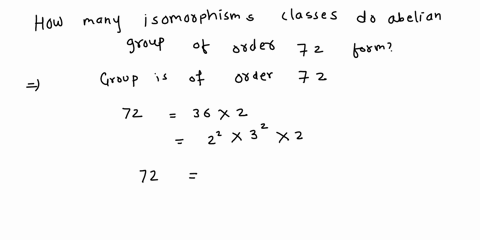 How many isomorphisms classes do abelian
group of order 72 form?
=) Group is of order 72
72 = 36 × 2
= 2² × 3² × 2
72 =